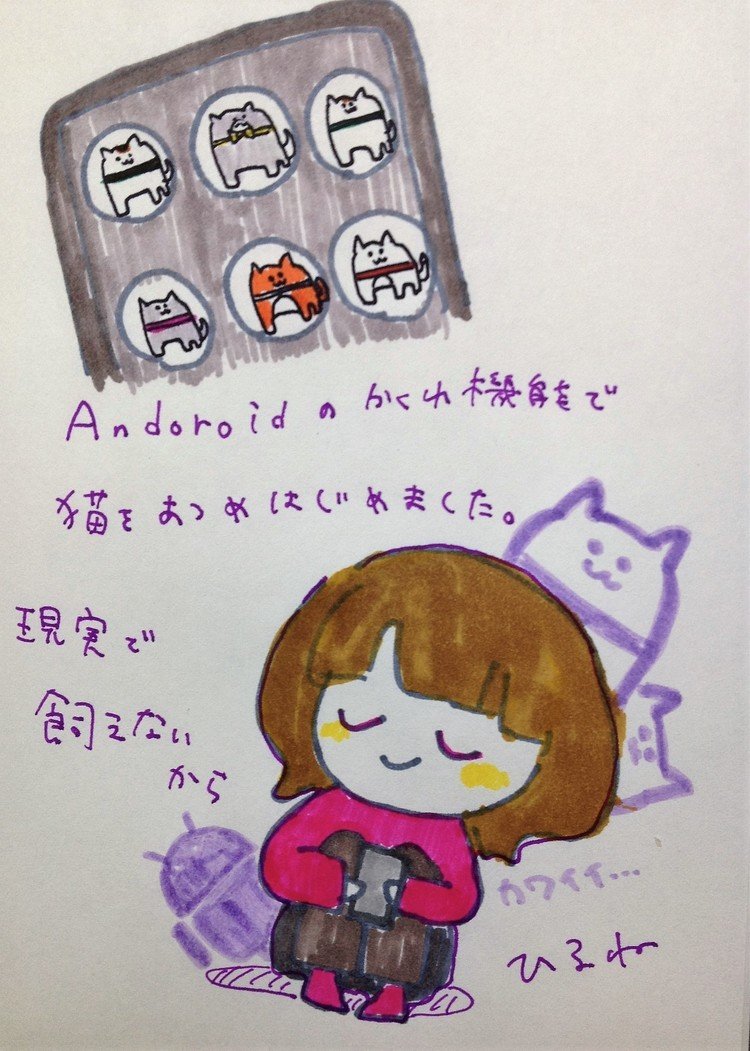 Andoroidのかくれ機能で
猫をあつめはじめました。
現実で
飼えない
から
カワイイ…
ひるね